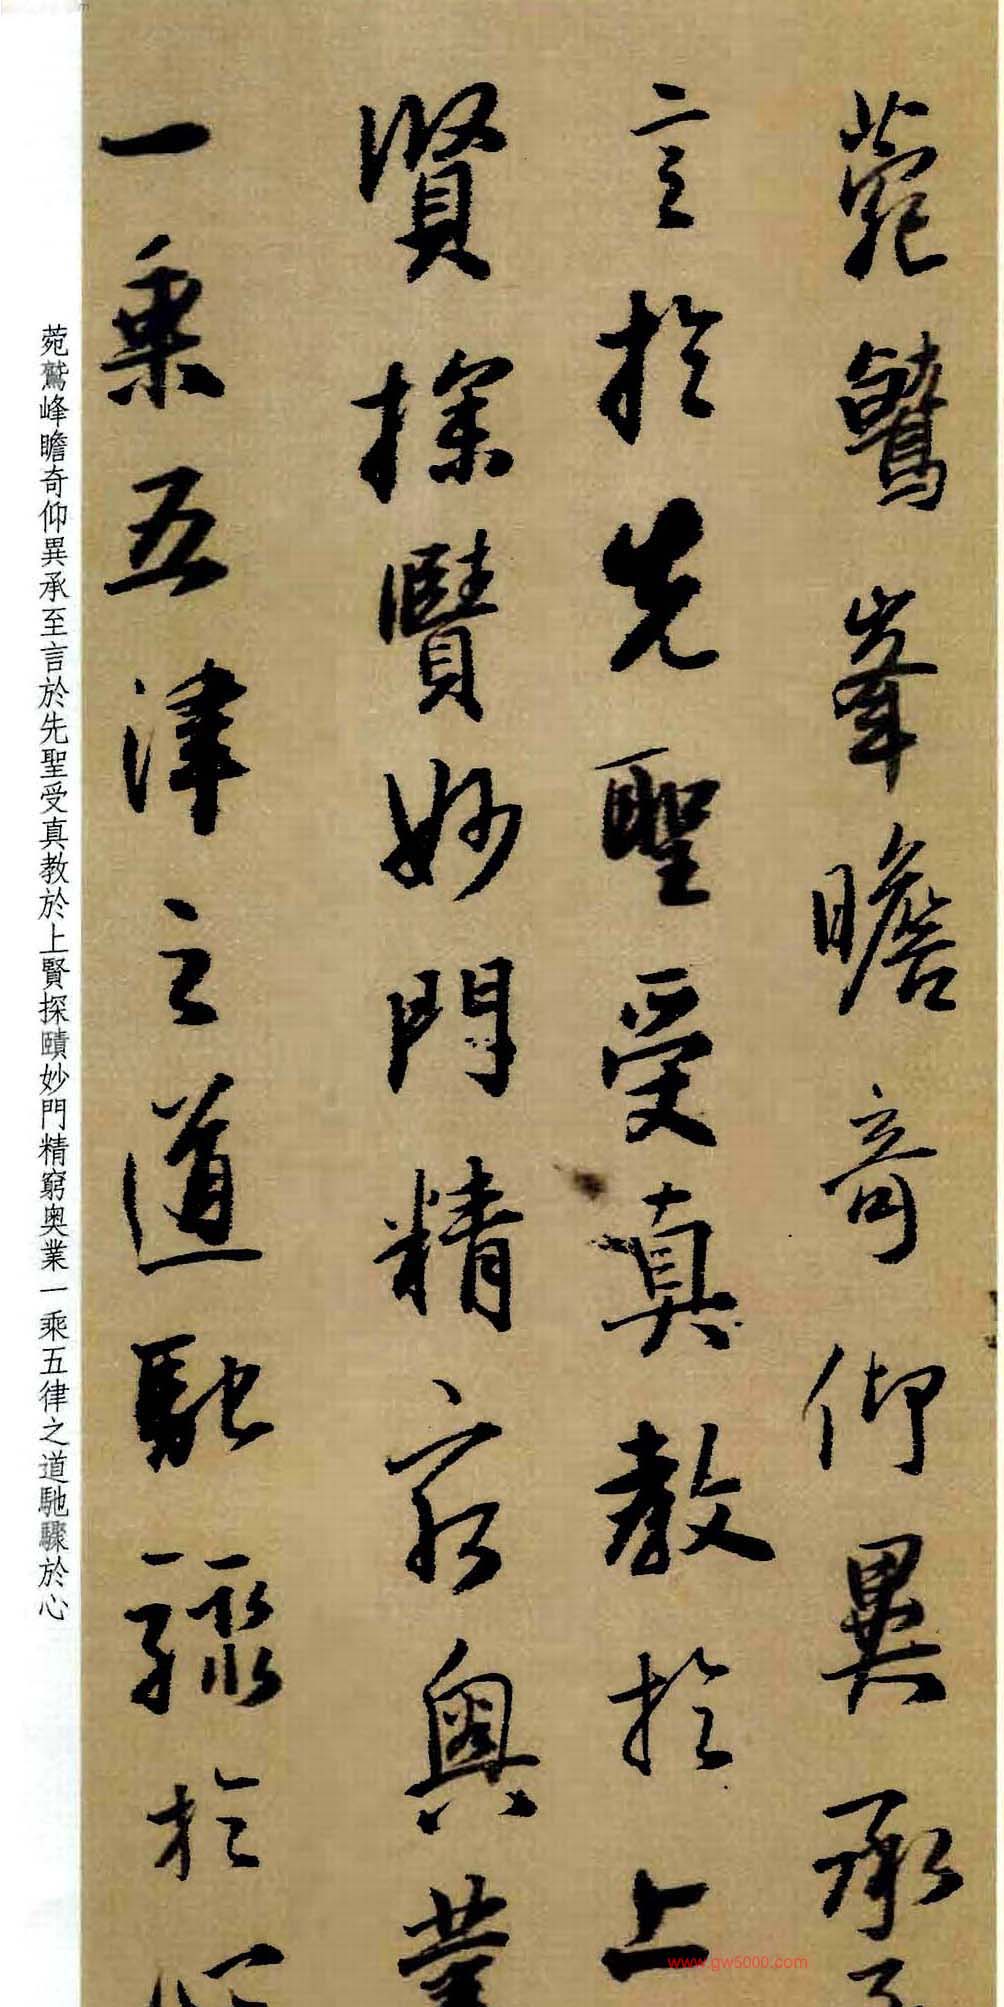 菀鷲峯瞻奇仰異承至
言於先聖受真教於上
賢探賾妙門精窮奧業
一乘五津之道馳驟於心
菀鷲峰瞻奇仰異承至言於先聖受真教於上賢探賾妙門精窮奧業一乘五律之道馳驟於心
www.gw5000.com